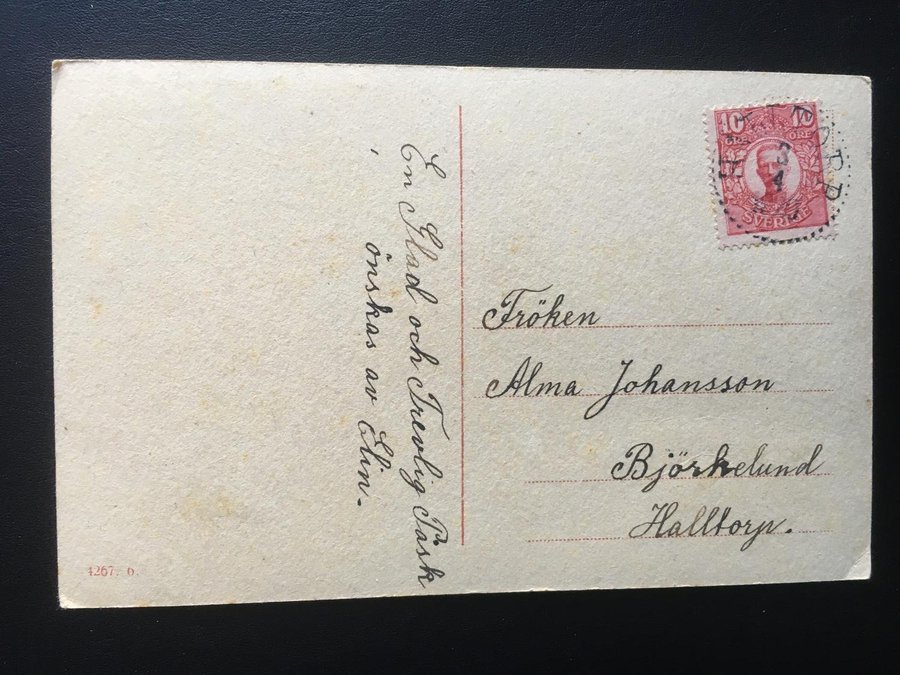 En Glad och Trevlig Påsk
önskas av Elin.
10 10
ÖRE ÖRE
SVERIGE
3
4
Fröken
Alma Johansson
Björkelund
Halltorp.
4267. 6.